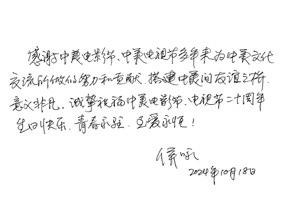 感谢中美电影节、中美电视节多年来为中美文化
交流所做的努力和贡献，搭建中美间友谊之桥，
意义非凡，诚挚祝福中美电影节、电视节二十周年
生日快乐，青春永驻，友爱永恒！
侯咏
2024年10月18日